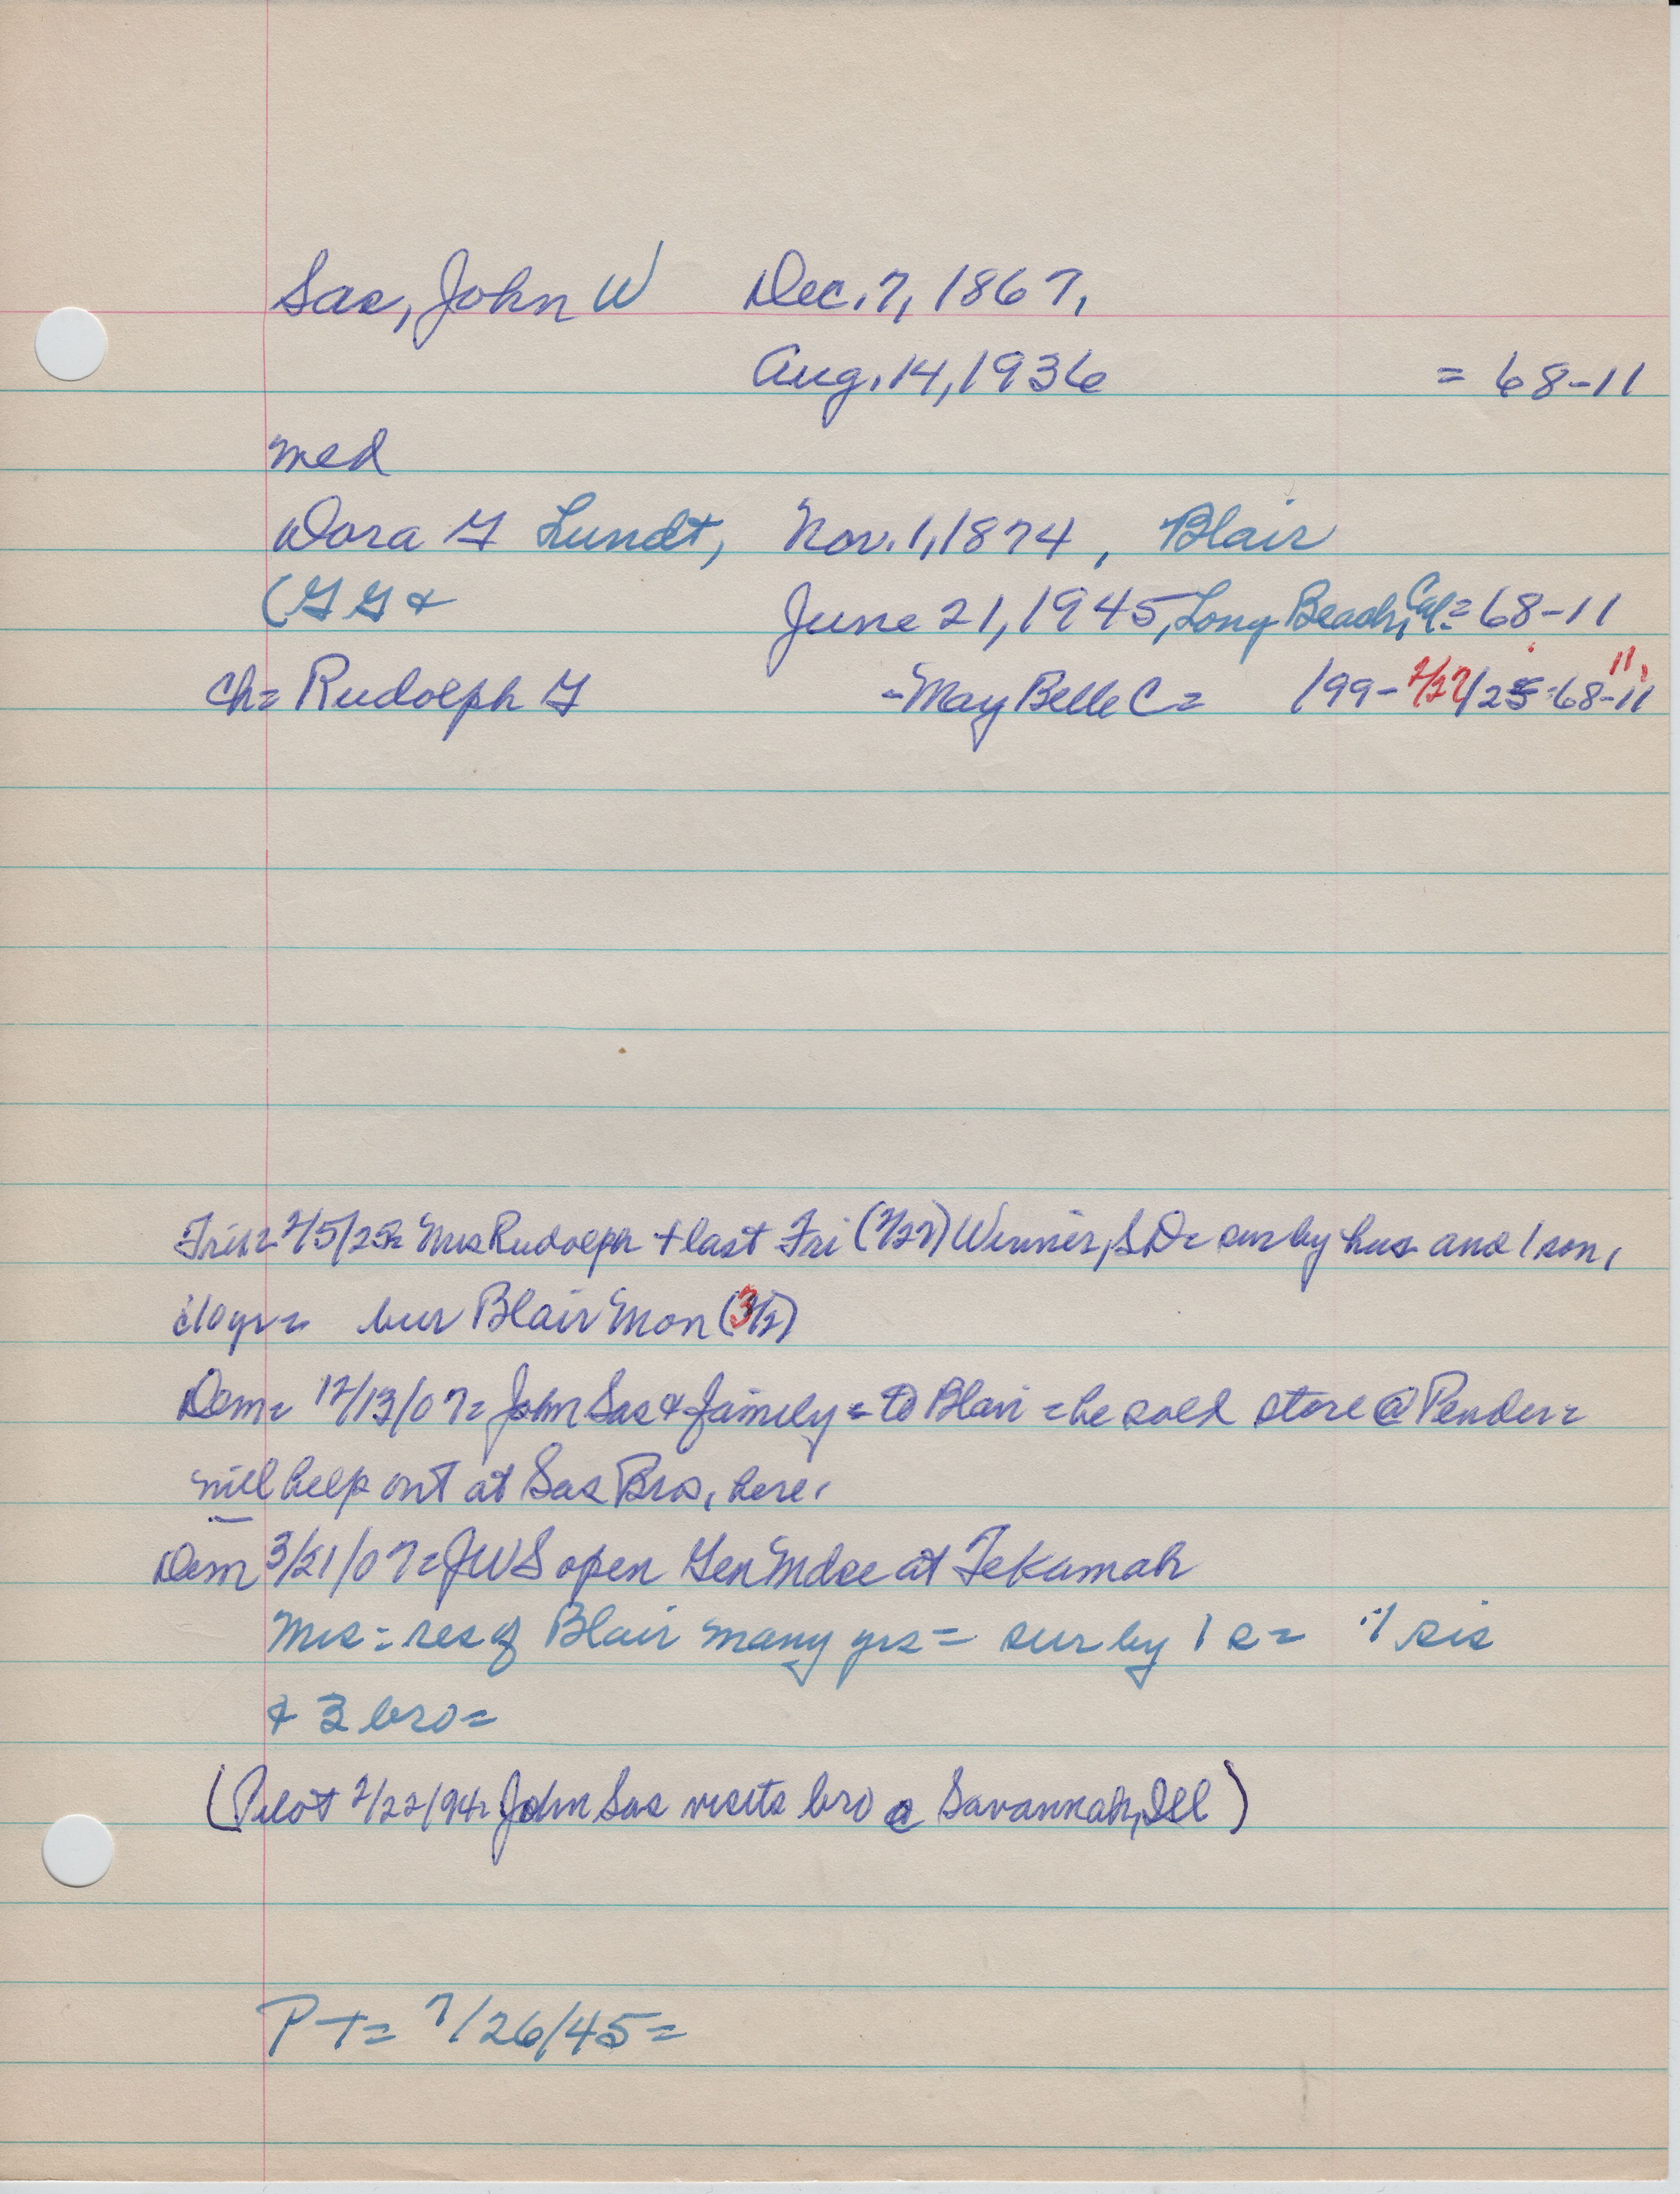 Sas, John W Dec. 7, 1867,
Aug. 14, 1936 = 68-11
med
Dora G Lundt, Nov. 1, 1874, Blair
(G G &
June 21, 1945, Long Beach, Cal. = 68-11
Ch= Rudolph G - May Belle C = 199- 2/27/25 = 68-11
11,
2/5/25= Mrs Rudolph + last Fri (2/27) Winner, SD= sur by hus and 1 son,
10 yr= bur Blair Mon (3/2)
Dem= 12/13/07= John Sas & family = to Blair = he sold store @ Pender=
will help out at Sas Bros, here,
Dem 3/21/07= JWS open Gen Mdse at Tekamah
Mrs = res of Blair many yrs = sur by 1 s= 1 sis
& 3 bro=
(Pilot 2/22/94= John Sas visits bro @ Savannah, Ill)
PT= 7/26/45=